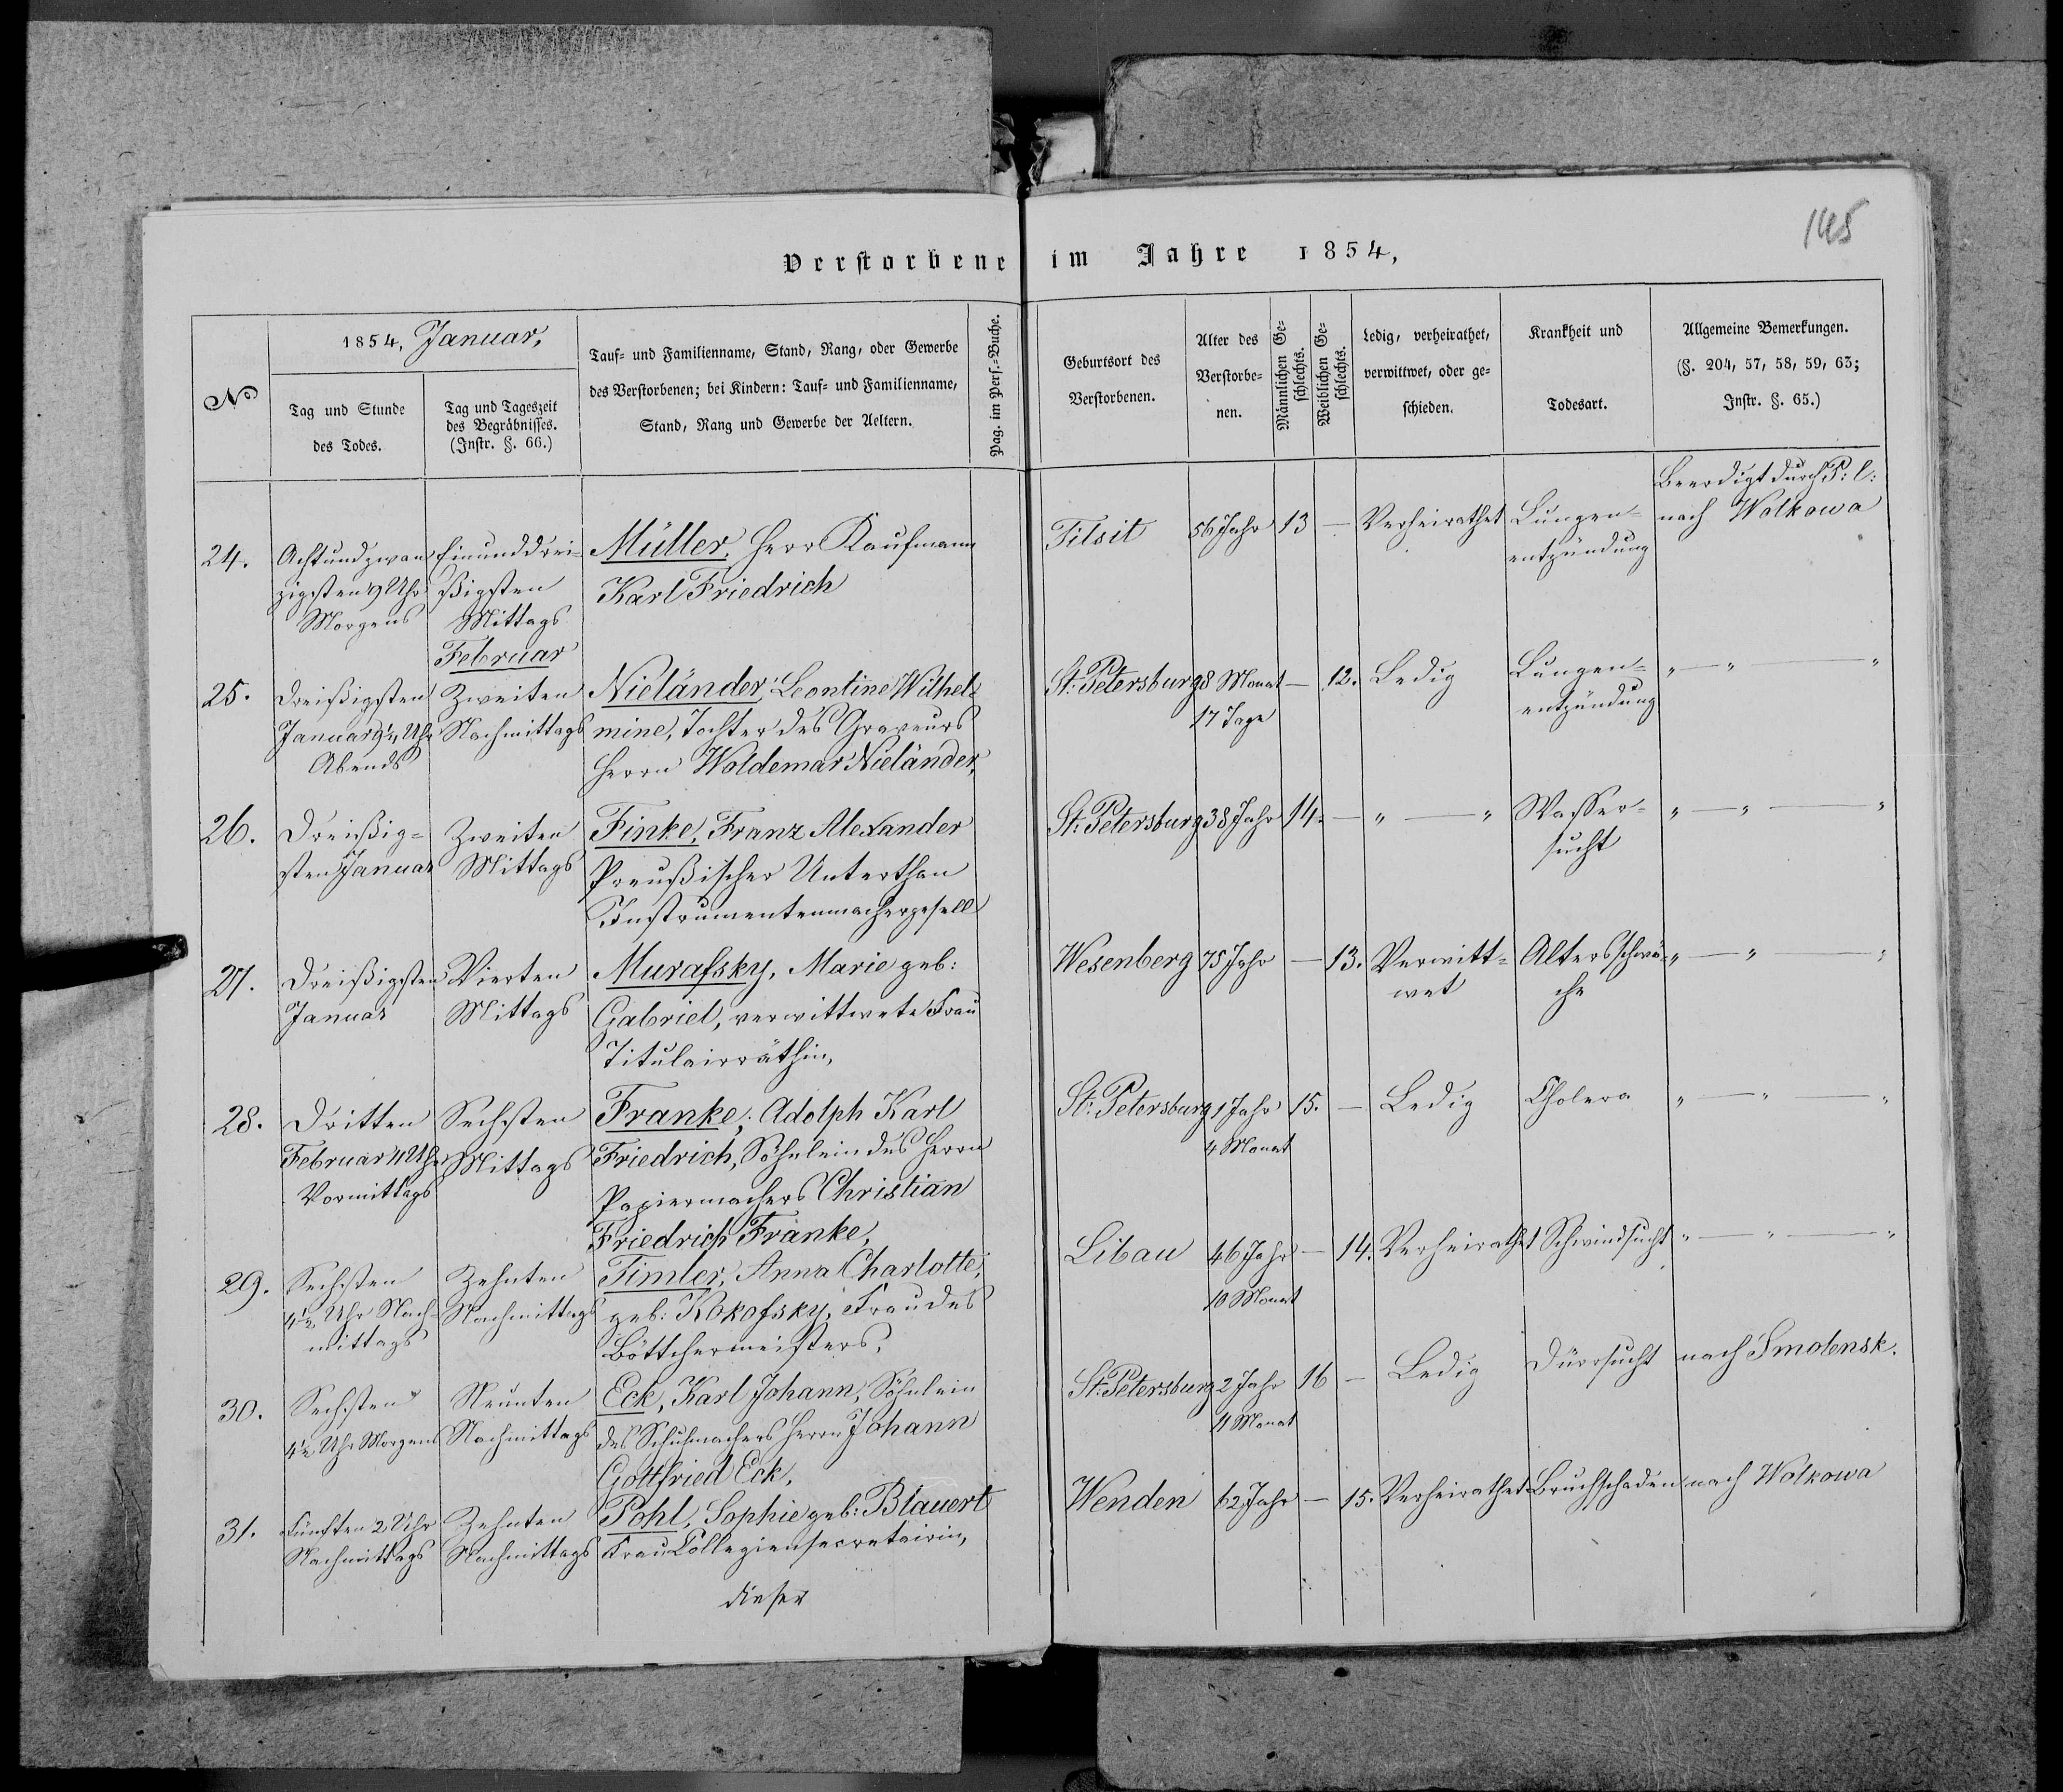 145
Verstorbene im Jahre 1854,
No
1854, Januar,
Tag und Stunde
des Todes.
Tag und Tageszeit
des Begräbnisses.
(Instr. §. 66.)
Tauf- und Familienname, Stand, Rang, oder Gewerbe
des Verstorbenen; bei Kindern: Tauf- und Familienname,
Stand, Rang und Gewerbe der Aeltern.
Pag. im Pers.-Buche.
Geburtsort des
Verstorbenen.
Alter des
Verstorbe-
nen.
Männlichen Ge-
schlechts.
Weiblichen Ge-
schlechts.
Ledig, verheirathet,
verwittwet, oder ge-
schieden.
Krankheit und
Todesart.
Allgemeine Bemerkungen.
(§. 204, 57, 58, 59, 63;
Instr. §. 65.)
24.
Achtundzwan
zigsten 9 Uhr
Morgens
Einunddrei-
ßigsten
Mittags
Müller, Herr Kaufmann
Karl Friedrich
Tilsit
56 Jahr
13
—
Verheirathet
Lungen-
entzündung
Beerdigt durch P: l:
nach Wolkowa
Februar
25.
Dreißigsten
Januar 9½ Uhr
Abends
Zweiten
Nachmittags
Nieländer, Leontine Wilhel-
mine, Tochter des Graveurs
Herrn Woldemar Nieländer,
St: Petersburg
8 Monat
17 Tage
—
12.
Ledig
Lungen-
entzündung
„ — „ — „
26.
Dreißig-
sten Januar
Zweiten
Mittags
Finke, Franz Alexander
Preußischer Unterthan
Instrumentenmachergesell
St: Petersburg
38 Jahr
14.
—
„ — „
Wasser-
sucht
„ — „ — „
27.
Dreißigsten
Januar
Vierten
Mittags
Murafsky, Marie geb:
Gabriel, verwittwete Frau
Titulairräthin,
Wesenberg
75 Jahr
—
13.
Verwitt-
wet
Altersschwä-
che
„ — „ — „
28.
Dritten
Februar 11 Uhr
Vormittags
Sechsten
Mittags
Franke, Adolph Karl
Friedrich, Söhnlein des Herrn
Papiermachers Christian
Friedrich Franke,
St: Petersburg
1 Jahr
4 Monat
15.
—
Ledig
Cholera
„ — „ — „
29.
Sechsten
4½ Uhr Nach-
mittags
Zehnten
Nachmittags
Timler, Anna Charlotte,
geb: Kokofsky, Frau des
Böttchermeisters,
Libau
46 Jahr
10 Monat
—
14.
Verheirathet
Schwindsucht
„ — „ — „
30.
Sechsten
4½ Uhr Morgens
Neunten
Nachmittags
Eck, Karl Johann, Söhnlein
des Schuhmachers Herrn Johann
Gottfried Eck,
St: Petersburg
2 Jahr
11 Monat
16
—
Ledig
Dürrsucht
nach Smolensk.
31.
Fünften 2 Uhr
Nachmittags
Zehnten
Nachmittags
Pohl, Sophie geb: Blauert
Frau Collegiensecretairin,
Wenden
62 Jahr
—
15.
Verheirathet
Bruchschaden
nach Wolkowa
dieser